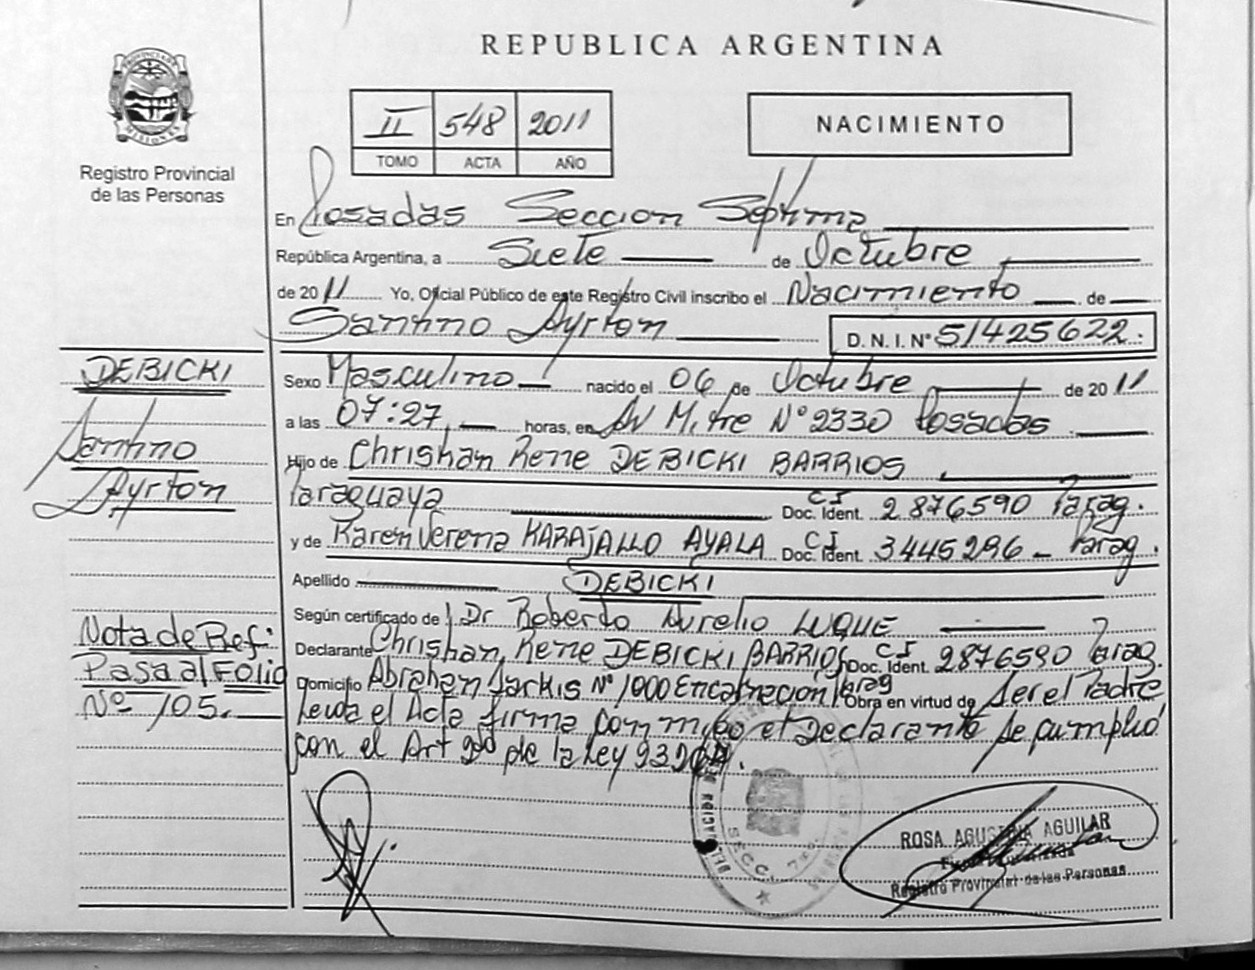 REPUBLICA ARGENTINA
PROVINCIA DE MISIONES
Registro Provincial
de las Personas
II 548 2011
TOMO ACTA AÑO
NACIMIENTO
En Posadas Sección Séptima
República Argentina, a Siete de Octubre
de 2011 Yo, Oficial Público de este Registro Civil inscribo el Nacimiento de
Santino Ayrton D. N. I. N° 51425622.
DEBICKI
Santino
Ayrton
Sexo Masculino nacido el 06 de Octubre de 2011
a las 07:27 horas, en Av Mitre N° 2330 Posadas
Hijo de Christian Rene DEBICKI BARRIOS
Paraguaya Doc. Ident. C I 2876590 Parag.
y de Karen Verena KARAJALLO AYALA Doc. Ident. C I 3445296 Parag.
Apellido DEBICKI
Según certificado de Dr Roberto Aurelio LUQUE
Declarante Christian Rene DEBICKI BARRIOS Doc. Ident. C I 2876590 Parag.
Domicilio Abrahan Sarkis N° 1000 Encarnación Parag Obra en virtud de Ser el Padre
Leida el Acta firma conmigo el Declarante se cumplió
con el Art 2do de la Ley
Nota de Ref:
Pasa al Folio
N° 105.
SECC. 7ma
ROSA AGUSTINA AGUILAR
Registro Provincial de las Personas